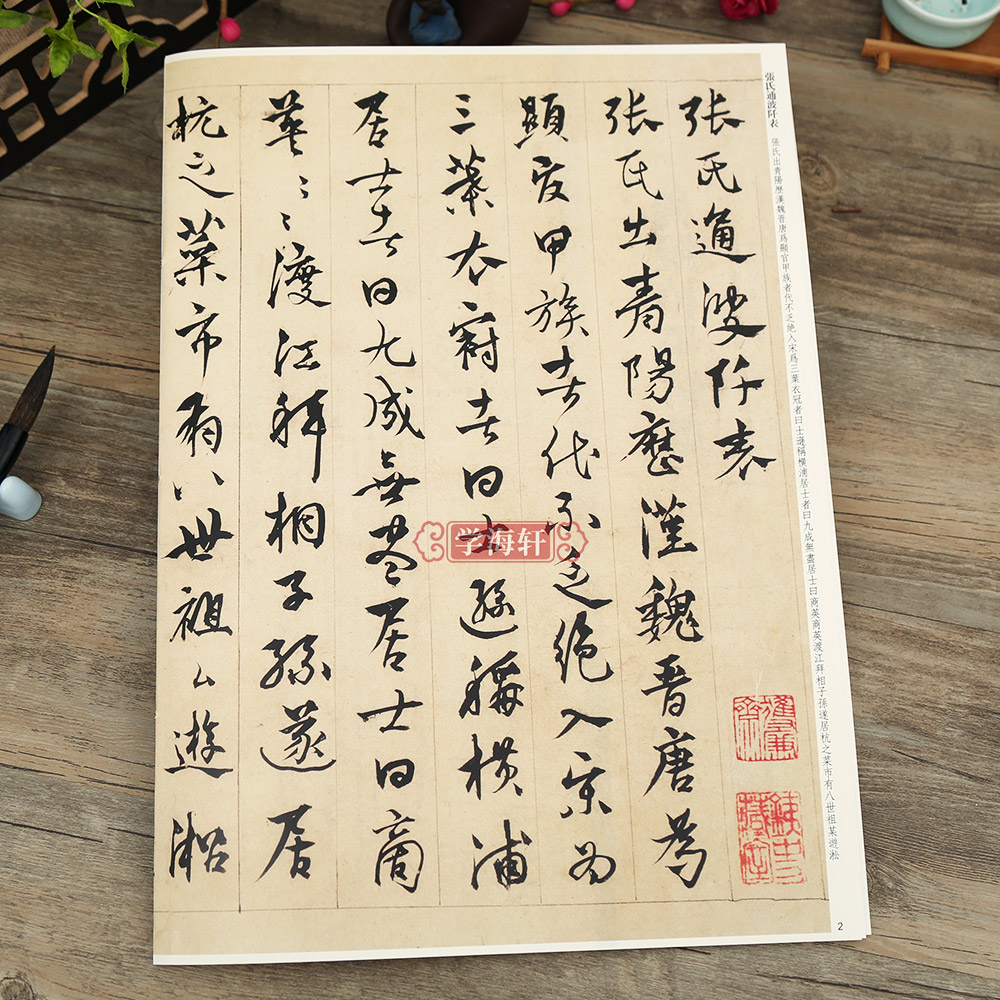 張氏通波阡表
張氏出青陽歷漢魏晉唐為
顯官甲族者代不乏絶入宋為
三葉衣冠者曰士遜稱橫浦
居士者曰九成無盡居士曰商
英〻〻渡江拜相子孫遂居
杭之菜市有八世祖厶遊淞
張氏通波阡表 張氏出青陽歷漢魏晉唐爲顯官甲族者代不乏絶入宋爲三葉衣冠者曰士遜稱橫浦居士者曰九成無盡居士曰商英商英渡江拜相子孫遂居杭之菜市有八世祖某遊淞
學海軒
2